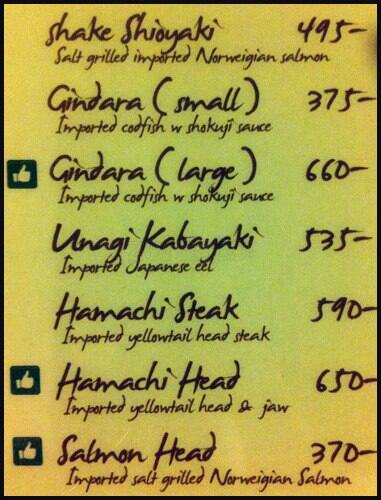 shake Shioyaki 495-
Salt grilled imported Norweigian salmon
Gindara (small) 375-
Imported codfish w shokuji sauce
Gindara (large) 660-
Imported codfish w shokuji sauce
Unagi Kabayaki 535-
Imported Japanese eel
Hamachi Steak 590-
Imported yellowtail head steak
Hamachi Head 650-
Imported yellowtail head & jaw
Salmon Head 370-
Imported salt grilled Norweigian Salmon